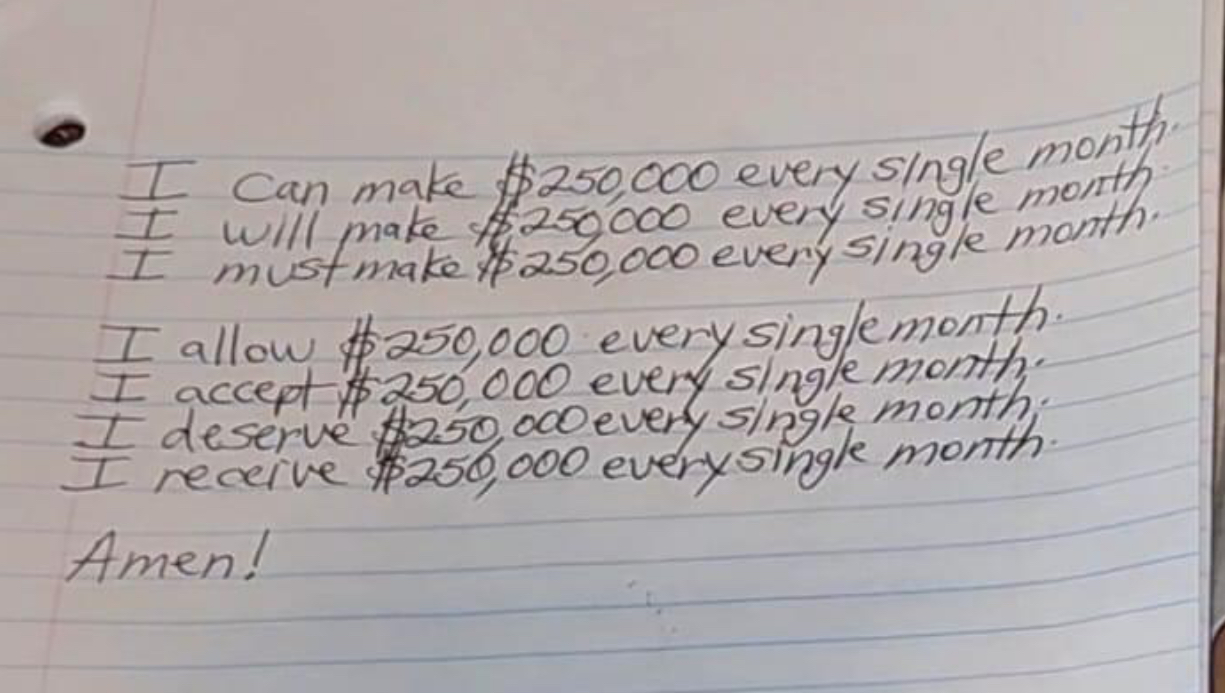 I Can make $250,000 every single month.
I will make $250,000 every single month.
I must make $250,000 every single month.
I allow $250,000 every single month.
I accept $250,000 every single month.
I deserve $250,000 every single month.
I receive $250,000 every single month.
Amen!